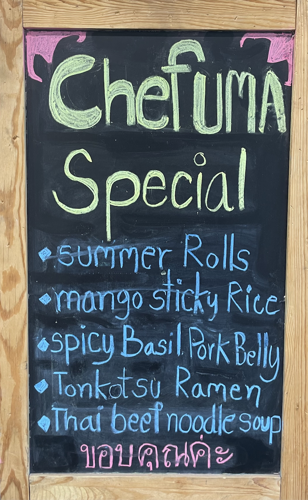 Chefuma
Special
• summer Rolls
• mango sticky Rice
• spicy Basil Pork Belly
• Tonkotsu Ramen
• Thai beef noodle soup
ขอบคุณค่ะ